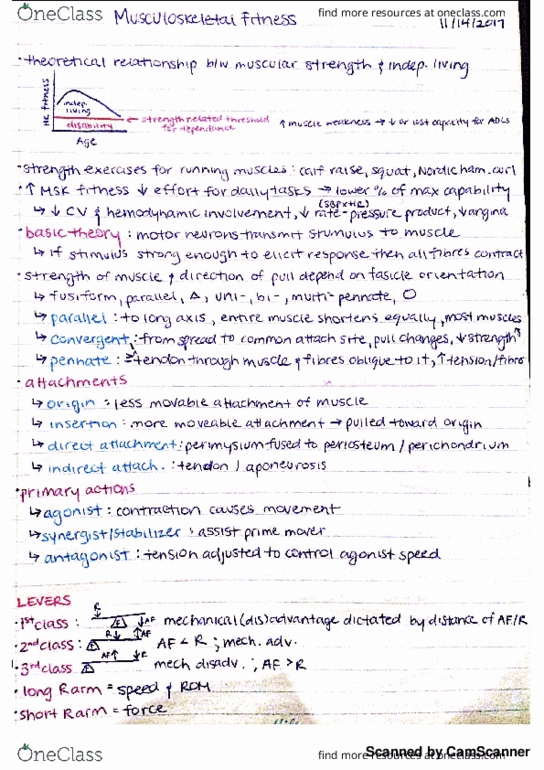 OneClass
find more resources at oneclass.com
Musculoskeletal Fitness
11/14/2017
• theoretical relationship b/w muscular strength & indep. living
MSK fitness
indep. living
disability
Age
← strength related threshold for dependance
↑ muscle weakness → ↓ or lost capacity for ADLs
• strength exercises for running muscles : calf raise, squat, Nordic ham. curl
• ↑ MSK fitness ↓ effort for daily tasks → lower % of max capability
(SBP×HR)
↳ ↓ CV & hemodynamic involvement, ↓ rate-pressure product, ↓ angina
• basic theory : motor neurons transmit stumulus to muscle
↳ if stimulus strong enough to elicit response then all fibres contract
• strength of muscle & direction of pull depend on fasicle orientation
↳ fusiform, parallel, Δ, uni-, bi-, multi-pennate, O
↳ parallel : to long axis, entire muscle shortens equally, most muscles
↳ convergent : from spread to common attach site, pull changes, ↓ strength
↳ pennate : tendon through muscle & fibres oblique to it, ↑ tension/fibre
• attachments
↳ origin : less movable attachment of muscle
↳ insertion : more moveable attachment → pulled toward origin
↳ direct attachment : permysium fused to periosteum / perichondrium
↳ indirect attach. : tendon / aponeurosis
• primary actions
↳ agonist : contraction causes movement
↳ synergist/stabilizer : assist prime mover
↳ antagonist : tension adjusted to control agonist speed
LEVERS
• 1st class : R F AF mechanical (dis)advantage dictated by distance of AF/R
• 2nd class : R AF AF < R ; mech. adv.
• 3rd class AF R mech disadv. ; AF > R
• long R arm = speed & ROM
• short R arm = force
OneClass
find more resources at oneclass.com
Scanned by CamScanner